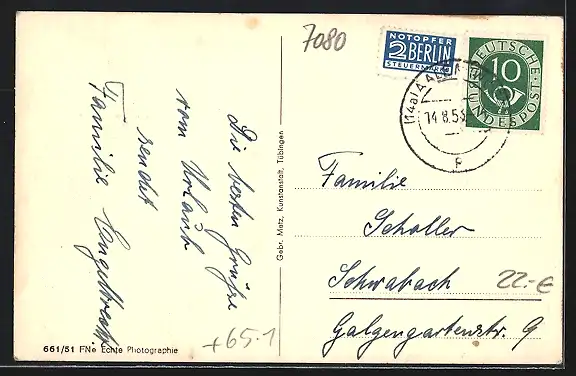 7080
NOTOPFER
2 BERLIN
STEUERMARKE
DEUTSCHE
BUNDESPOST
10
(14a) AALEN
14.8.53
P
Die besten Grüße
vom Urlaub
sendet
Familie
Gebr. Metz, Kunstanstalt, Tübingen
Familie
Scholler
Schwabach
Galgengartenstr. 9
22.-€
+65.1
661/51 FNe Echte Photographie